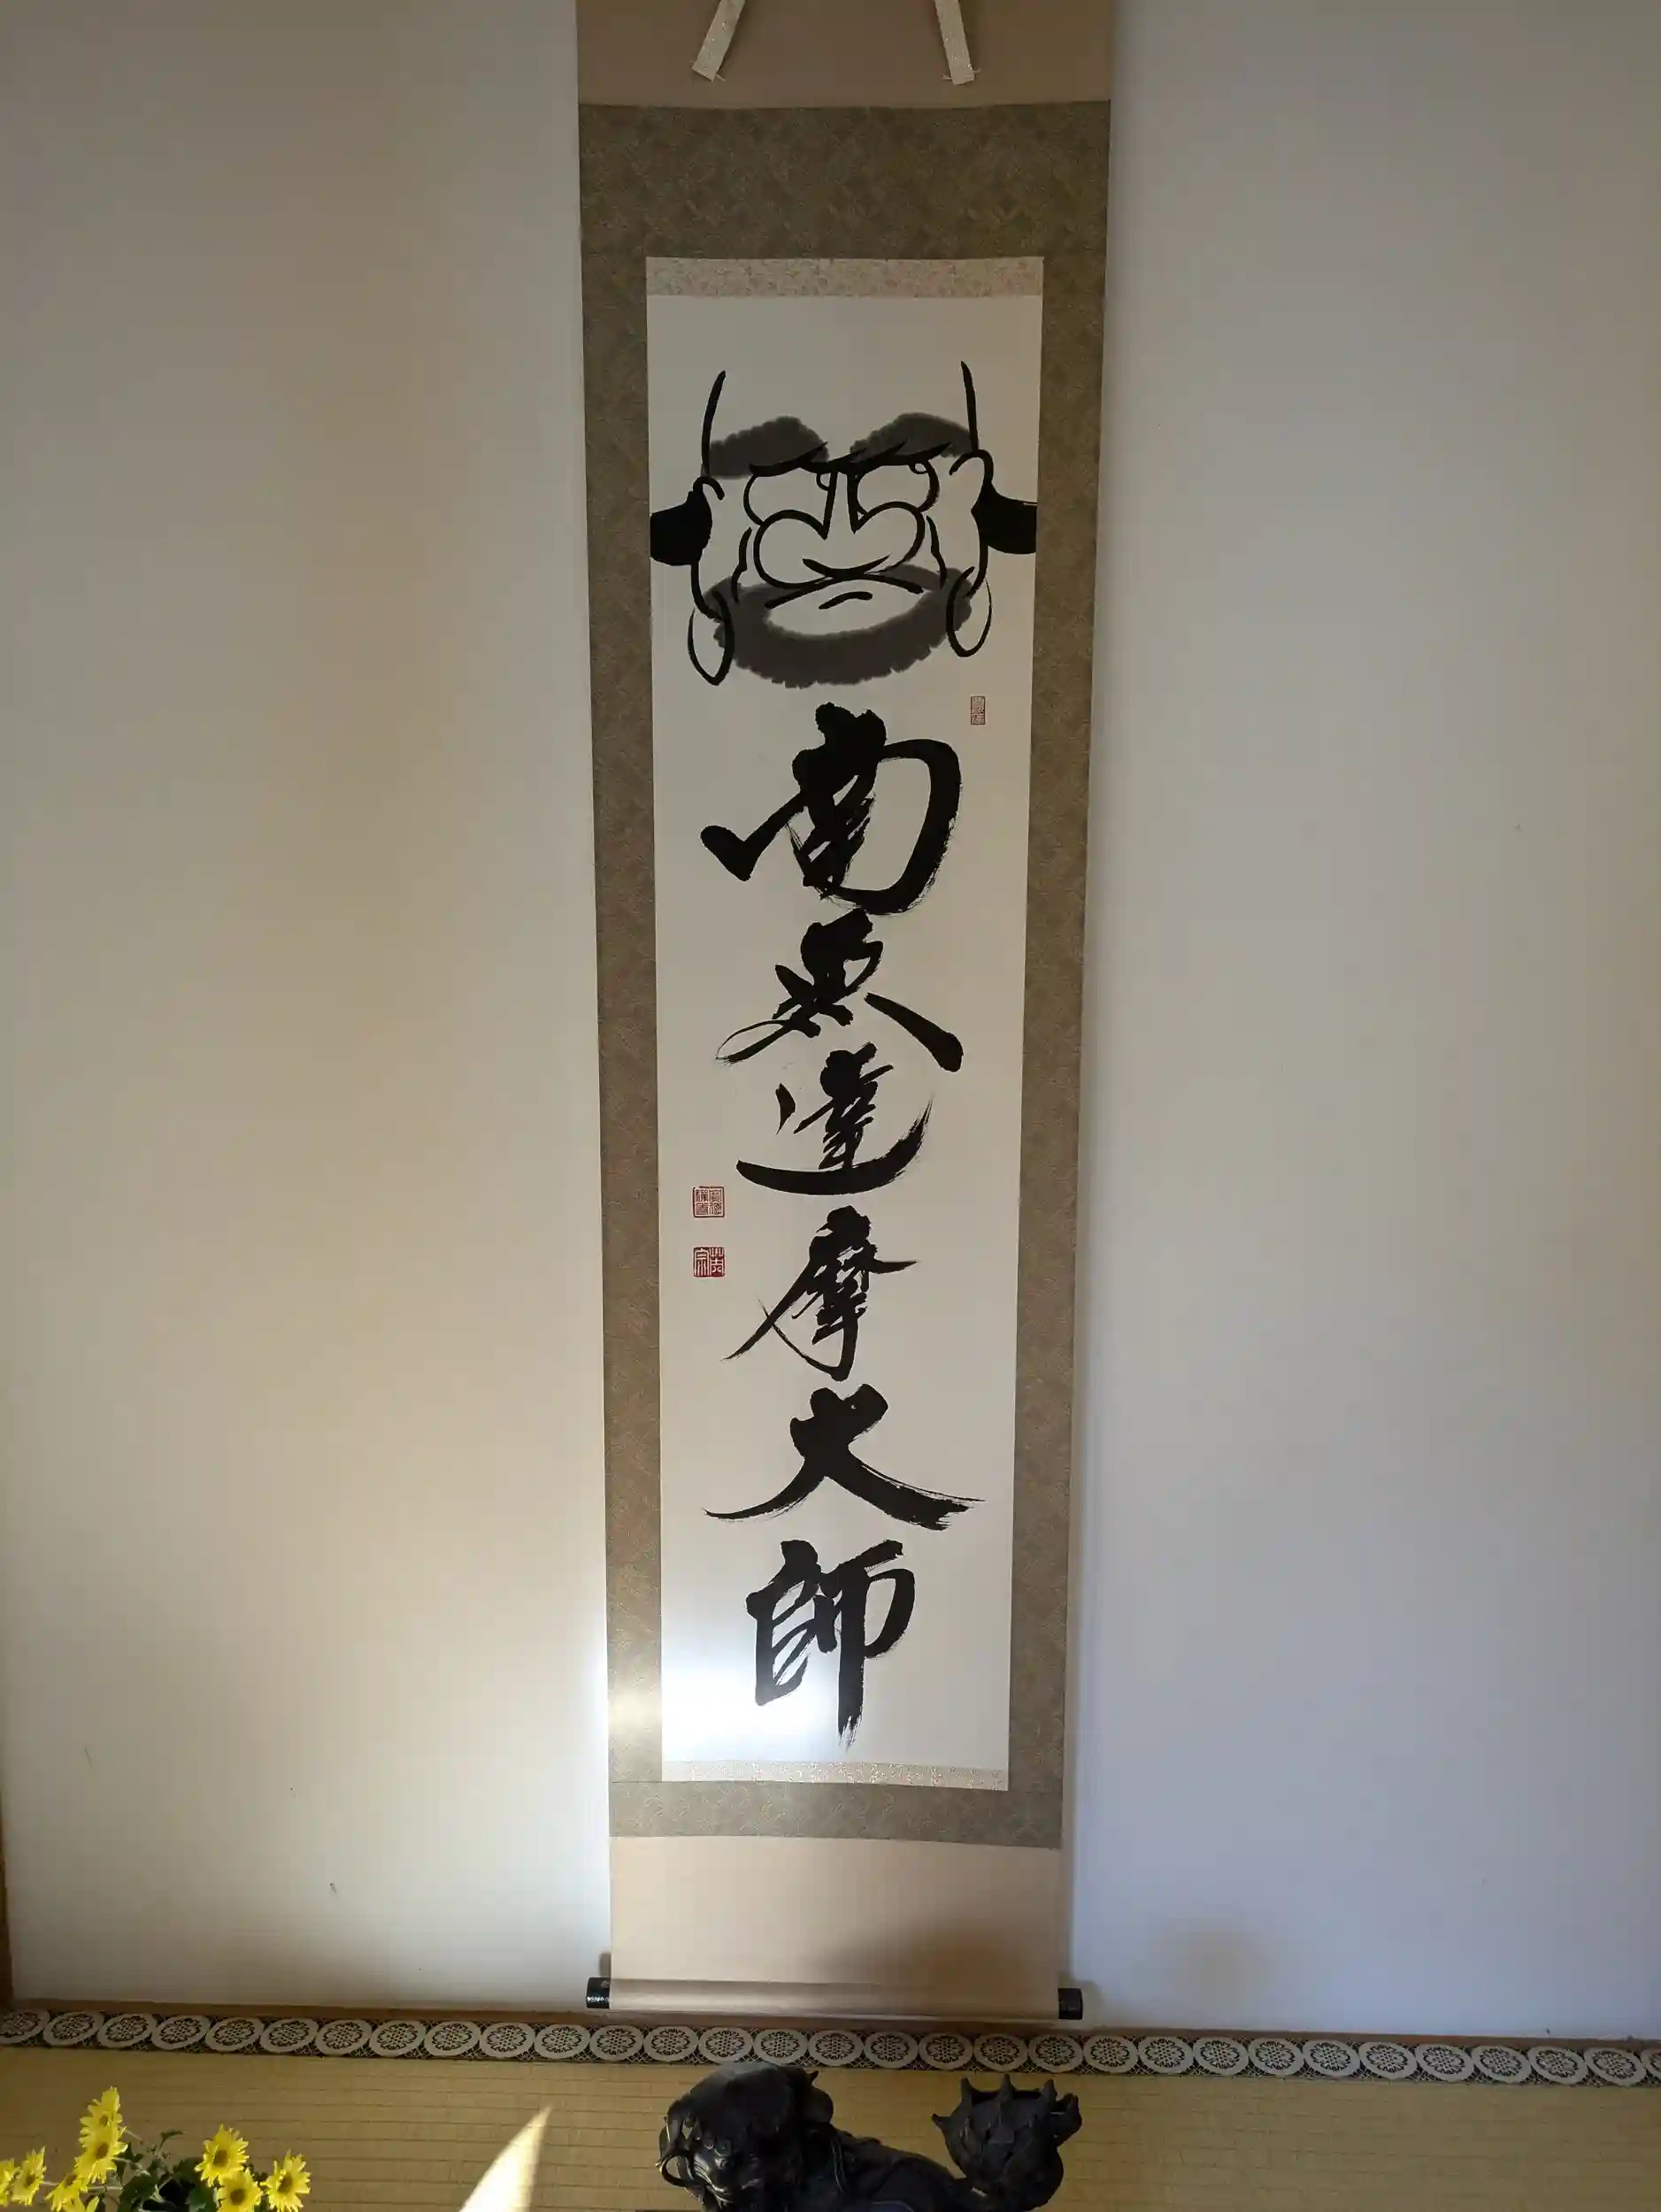 南無達摩大師